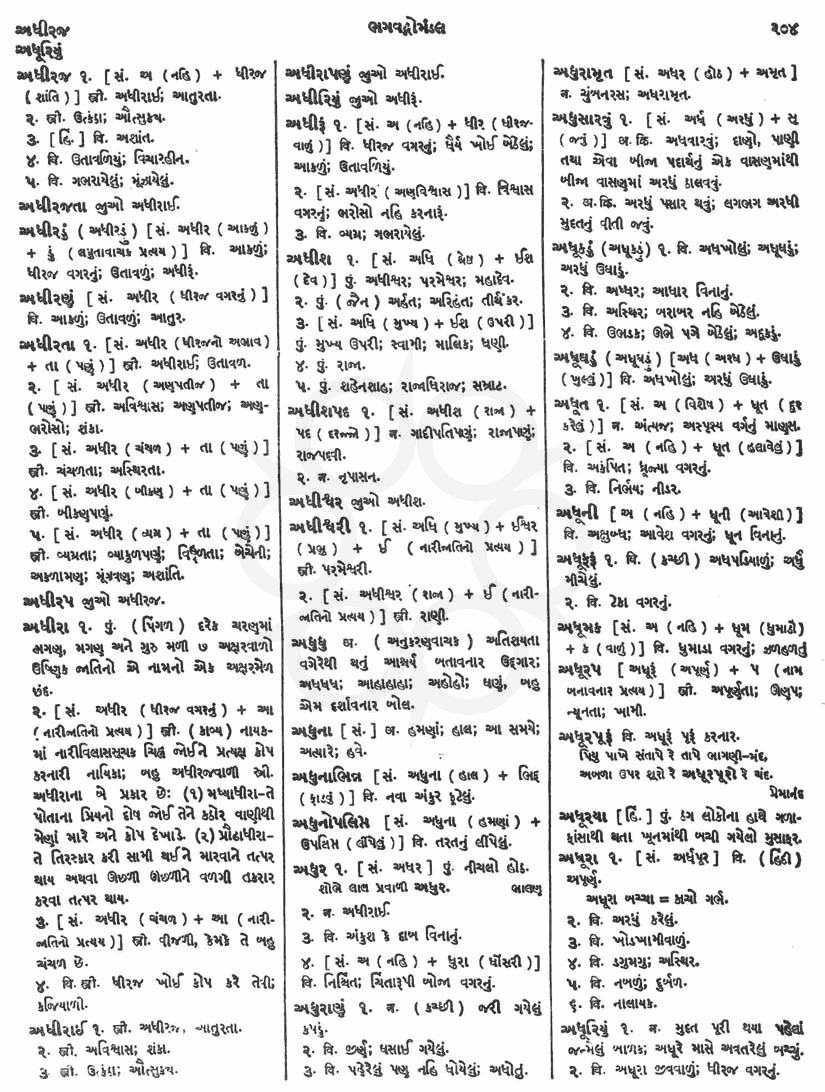 અધીરજ
અધૂરિયું
ભગવદ્ગોમંડલ
૨૦૪
અધીરજ ૧. [ સં. અ (નહિ) + ધીરજ
(શાંતિ) ] સ્ત્રી. અધીરાઈ; આતુરતા.
૨. સ્ત્રી. ઉત્કંઠા; ઔત્સુક્ય.
૩. [ હિં. ] વિ. અશાંત.
૪. વિ. ઉતાવળિયું; વિચારહીન.
૫. વિ. ગભરાયેલું; મૂંઝાયેલું.
અધીરજતા જુઓ અધીરાઈ.
અધીરડું (અધીરડું) [ સં. અધીર (આકળું)
+ ડું (લઘુતાવાચક પ્રત્યય) ] વિ. આકળું;
ધીરજ વગરનું; ઉતાવળું; અધીરું.
અધીરણું [ સં. અધીર (ધીરજ વગરનું) ]
વિ. આકળું; ઉતાવળું; આતુર.
અધીરતા ૧. [ સં. અધીર (ધીરજનો અભાવ)
+ તા (પણું) ] સ્ત્રી. અધીરાઈ; ઉતાવળ.
૨. [ સં. અધીર (અણપતીજ) + તા
(પણું) ] સ્ત્રી. અવિશ્વાસ; અણપતીજ; અણ-
ભરોસો; શંકા.
૩. [ સં. અધીર (ચંચળ) + તા (પણું) ]
સ્ત્રી. ચંચળતા; અસ્થિરતા.
૪. [ સં. અધીર (બીકણ) + તા (પણું) ]
સ્ત્રી. બીકણપણું.
૫. [ સં. અધીર (વ્યગ્ર) + તા (પણું) ]
સ્ત્રી. વ્યગ્રતા; વ્યાકુળપણું; વિહ્વળતા; બેચેની;
અકળામણ; મૂંઝવણ; અશાંતિ.
અધીરપ જુઓ અધીરજ.
અધીરા ૧. પું. (પિંગળ) દરેક ચરણમાં
ભગણ, મગણ અને ગુરુ મળી ૭ અક્ષરવાળો
ઉષ્ણિક જાતિનો એ નામનો એક અક્ષરમેળ
છંદ.
૨. [ સં. અધીર (ધીરજ વગરનું) + આ
(નારીજાતિનો પ્રત્યય) ] સ્ત્રી. (કાવ્ય) નાયક-
માં નારીવિલાસસૂચક ચિહ્ન જોઈને પ્રત્યક્ષ કોપ
કરનારી નાયિકા; બહુ અધીરજવાળી સ્ત્રી.
અધીરાના બે પ્રકાર છેઃ (૧) મધ્યાધીરા-તે
પોતાના પ્રિયનો દોષ જોઈ તેને કઠોર વાણીથી
મેણાં મારે અને કોપ દેખાડે. (૨) પ્રૌઢાધીરા-
તે તિરસ્કાર કરી સામી થઈને મારવાને તત્પર
થાય અથવા ઊછળી ઊછળીને વળગી તકરાર
કરવા તત્પર થાય.
૩. [ સં. અધીર (ચંચળ) + આ (નારી-
જાતિનો પ્રત્યય) ] સ્ત્રી. વીજળી, કેમકે તે બહુ
ચંચળ છે.
૪. વિ. સ્ત્રી. ધીરજ ખોઈ કોપ કરે તેવી;
કજિયાળી.
અધીરાઈ ૧. સ્ત્રી. અધીરજ, આતુરતા.
૨. સ્ત્રી. અવિશ્વાસ; શંકા.
૩. સ્ત્રી. ઉત્કંઠા; ઔત્સુક્ય.
અધીરાપણું જુઓ અધીરાઈ.
અધીરિયું જુઓ અધીરું.
અધીરું ૧. [ સં. અ (નહિ) + ધીર (ધીરજ-
વાળું) ] વિ. ધીરજ વગરનું; ધૈર્ય ખોઈ બેઠેલું;
આકળું; ઉતાવળિયું.
૨. [ સં. અધીર (અણવિશ્વાસ) ] વિ. વિશ્વાસ
વગરનું; ભરોસો નહિ કરનારું.
૩. વિ. વ્યગ્ર; ગભરાયેલું.
અધીશ ૧. [ સં. અધિ (શ્રેષ્ઠ) + ઈશ
(દેવ) ] પું. અધીશ્વર; પરમેશ્વર; મહાદેવ.
૨. પું. (જૈન) અર્હત; અરિહંત; તીર્થંકર.
૩. [ સં. અધિ (મુખ્ય) + ઈશ (ઉપરી) ]
પું. મુખ્ય ઉપરી; સ્વામી; માલિક; ધણી.
૪. પું. રાજા.
૫. પું. શહેનશાહ; રાજાધિરાજ; સમ્રાટ.
અધીશપદ ૧. [ સં. અધીશ (રાજા) +
પદ (દરજ્જો) ] ન. ગાદીપતિપણું; રાજાપણું;
રાજપદવી.
૨. ન. નૃપાસન.
અધીશ્વર જુઓ અધીશ.
અધીશ્વરી ૧. [ સં. અધિ (મુખ્ય) + ઈશ્વર
(પ્રભુ) + ઈ (નારીજાતિનો પ્રત્યય) ]
સ્ત્રી. પરમેશ્વરી.
૨. [ સં. અધીશ્વર (રાજા) + ઈ (નારી-
જાતિનો પ્રત્યય) ] સ્ત્રી. રાણી.
અધુધુ અ. (અનુકરણવાચક) અતિશયતા
વગેરેથી થતું આશ્ચર્ય બતાવનાર ઉદ્ગાર;
અધધધ; આહાહાહા; અહોહો; ઘણું, બહુ
એમ દર્શાવનાર બોલ.
અધુના [ સં. ] અ. હમણાં; હાલ; આ સમયે;
અત્યારે; હવે.
અધુનાભિન્ન [ સં. અધુના (હાલ) + ભિદ્
(ફાટવું) ] વિ. નવા અંકુર ફૂટેલું.
અધુનોપલિપ્ત [ સં. અધુના (હમણાં) +
ઉપલિપ્ત (લીંપેલું) ] વિ. તરતનું લીંપેલું.
અધુર ૧. [ સં. અધર ] પું. નીચલો હોઠ.
શોભે લાલ પ્રવાળી અધુર. ભાલણ
૨. ન. અધીરાઈ.
૩. વિ. અંકુશ કે દાબ વિનાનું.
૪. [ સં. અ (નહિ) + ધુરા (ધોંસરી) ]
વિ. નિશ્ચિંત; ચિંતારૂપી બોજા વગરનું.
અધુરાણું ૧. ન. (કચ્છી) જરી ગયેલું
કપડું.
૨. વિ. જીર્ણ; ઘસાઈ ગયેલું.
૩. વિ. પહેરેલું પણ નહિ ધોયેલું; અધોતું.
અધુરામૃત [ સં. અધર (હોઠ) + અમૃત ]
ન. ચુંબનરસ; અધરામૃત.
અધુસારવું ૧. [ સં. અર્ધ (અરધું) + સૃ
(જવું) ] અ. ક્રિ. અધવારવું; દાણો, પાણી
તથા એવા બીજા પદાર્થનું એક વાસણમાંથી
બીજા વાસણમાં અરધું ઠાલવવું.
૨. અ. ક્રિ. અરધું પસાર થવું; લગભગ અરધી
મુદ્દતનું વીતી જવું.
અધૂકડું (અધૂકડું) ૧. વિ. અધખોલું; અધૂઘડું;
અરધું ઉઘાડું.
૨. વિ. અધ્ધર; આધાર વિનાનું.
૩. વિ. અસ્થિર; બરાબર નહિ બેઠેલું.
૪. વિ. ઉભડક; ઊભે પગે બેઠેલું; અદૂકડું.
અધૂઘડું (અધૂઘડું) [ અધ (અરધ) + ઉઘાડું
(ખુલ્લું) ] વિ. અધખોલું; અરધું ઉઘાડું.
અધૂત ૧. [ સં. અ (વિશેષ) + ધૂત (દૂર
કરેલું) ] ન. અંત્યજ; અસ્પૃશ્ય વર્ગનું માણસ.
૨. [ સં. અ (નહિ) + ધૂત (હલાવેલું) ]
વિ. અકંપિત; ધ્રૂજ્યા વગરનું.
૩. વિ. નિર્ભય; નીડર.
અધૂની [ અ (નહિ) + ધૂની (આવેશી) ]
વિ. અક્ષુબ્ધ; આવેશ વગરનું; ધૂન વિનાનું.
અધૂફ્ફું ૧. વિ. (કચ્છી) અધપડિયાળું; અર્ધું
મીચેલું.
૨. વિ. ટેકા વગરનું.
અધૂમક [ સં. અ (નહિ) + ધૂમ (ધુમાડો)
+ ક (વાળું) ] વિ. ધુમાડા વગરનું; ઝળહળતું
અધૂરપ [ અધૂરું (અપૂર્ણ) + પ (નામ
બનાવનાર પ્રત્યય) ] સ્ત્રી. અપૂર્ણતા; ઊણપ;
ન્યૂનતા; ખામી.
અધૂરપૂરું વિ. અધૂરું પૂરું કરનાર.
પિયુ પાખે સંતાપે રે તાપે ભાગણી-મંદ,
અબળા ઉપર શૂરો રે અધૂરપૂરો રે ચંદ.
પ્રેમાનંદ
અધૂરયા [ હિં. ] પું. ઠગ લોકોના હાથે ગળા-
ફાંસાથી થતા ખૂનમાંથી બચી ગયેલો મુસાફર.
અધૂરા ૧. [ સં. અર્ધપૂર ] વિ. (હિંદી)
અપૂર્ણ.
અધૂરા બચ્ચા = કાચો ગર્ભ.
૨. વિ. અરધું કરેલું.
૩. વિ. ખોડખામીવાળું.
૪. વિ. ડગુમગુ; અસ્થિર.
૫. વિ. નબળું; દુર્બળ.
૬. વિ. નાલાયક.
અધૂરિયું ૧. ન. મુદત પૂરી થયા પહેલાં
જન્મેલું બાળક; અધૂરે માસે અવતરેલું બચ્ચું.
૨. વિ. અધૂરા જીવવાળું; ધીરજ વગરનું.